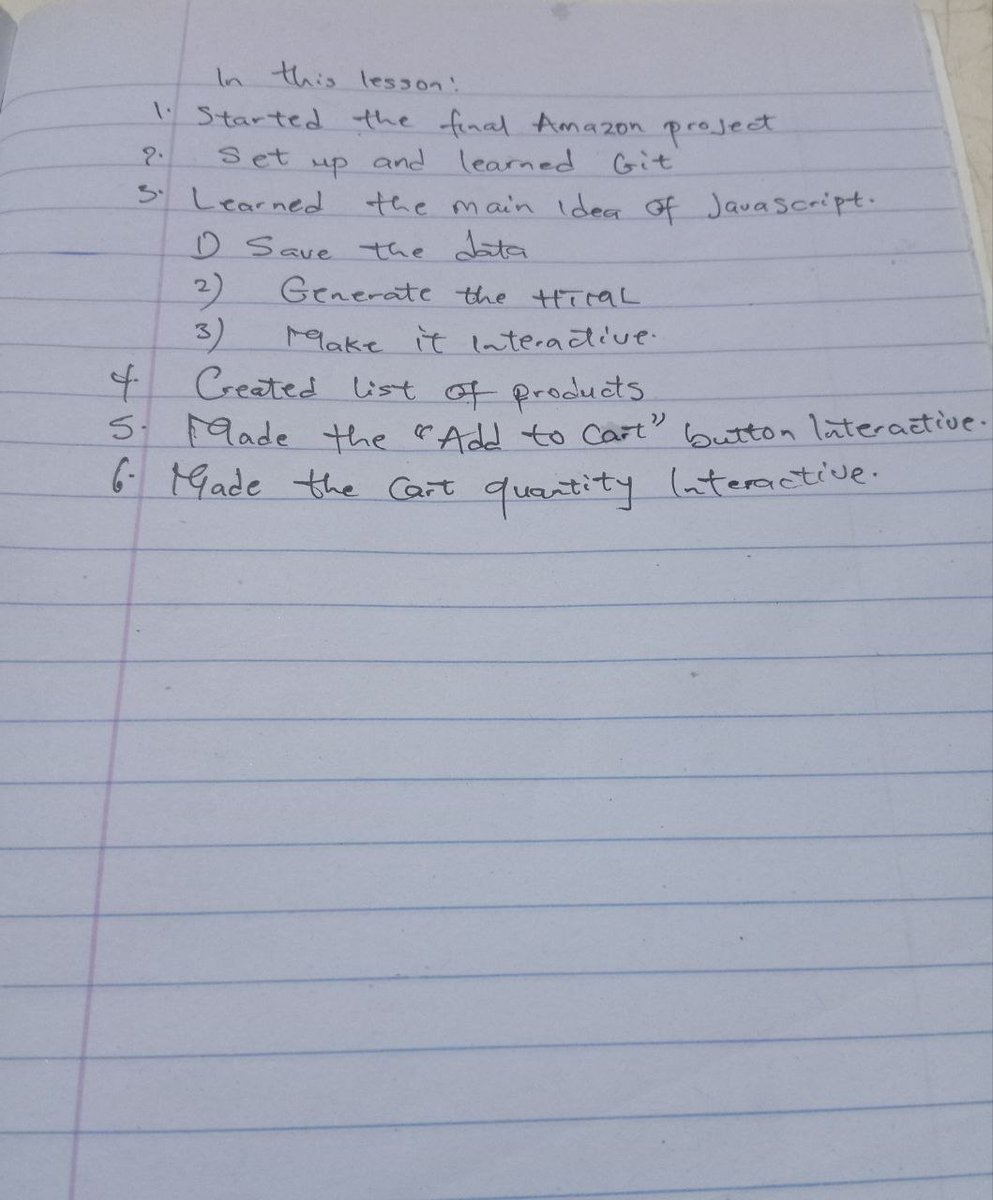 In this lesson:
1. Started the final Amazon project
2. Set up and learned Git
3. Learned the main idea of Javascript.
1) Save the data
2) Generate the HTML
3) Make it interactive.
4. Created list of products
5. Made the "Add to Cart" button interactive.
6. Made the Cart quantity Interactive.